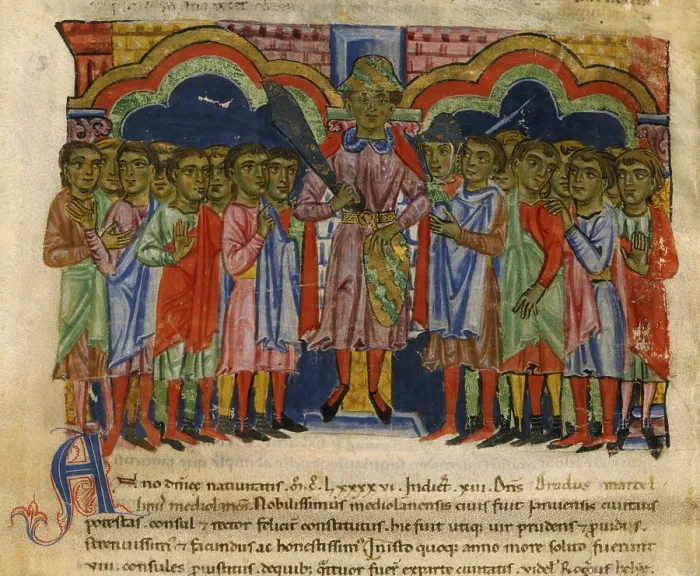 Anno dn̄ice natiuitatis . m̊. c̊. lxxxx vi . Indict̄. xiii . Dn̄s Drudus marcel
linus mediolanen̄. Nobilissimus mediolanensis ciuis fuit ianuensis ciuitatis
potestas . consul ⁊ rector felicit̄ constitutus . hic fuit utiqꝫ uir prudens ⁊ p̄uidus .
strenuissimꝰ ⁊ facundus ac honestissimꝰ. In isto quoqꝫ anno more solito fuerunt
viii. consules dequibꝫ. q̄ttuor fuer̄ exparte ciuitatis . videl̄. helye.